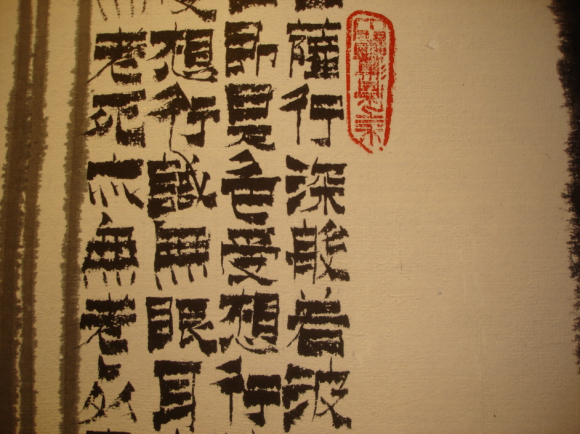 薩行深般若波
即是色受想行
想行識無眼耳
老死亦無老死